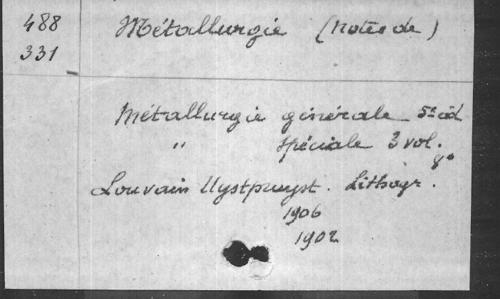 488 Métallurgie (Notes de)
331
Métallurgie générale 5e éd
" spéciale 3 vol.
8°
Louvain Uystpruyst. Lithogr.
1906
1902